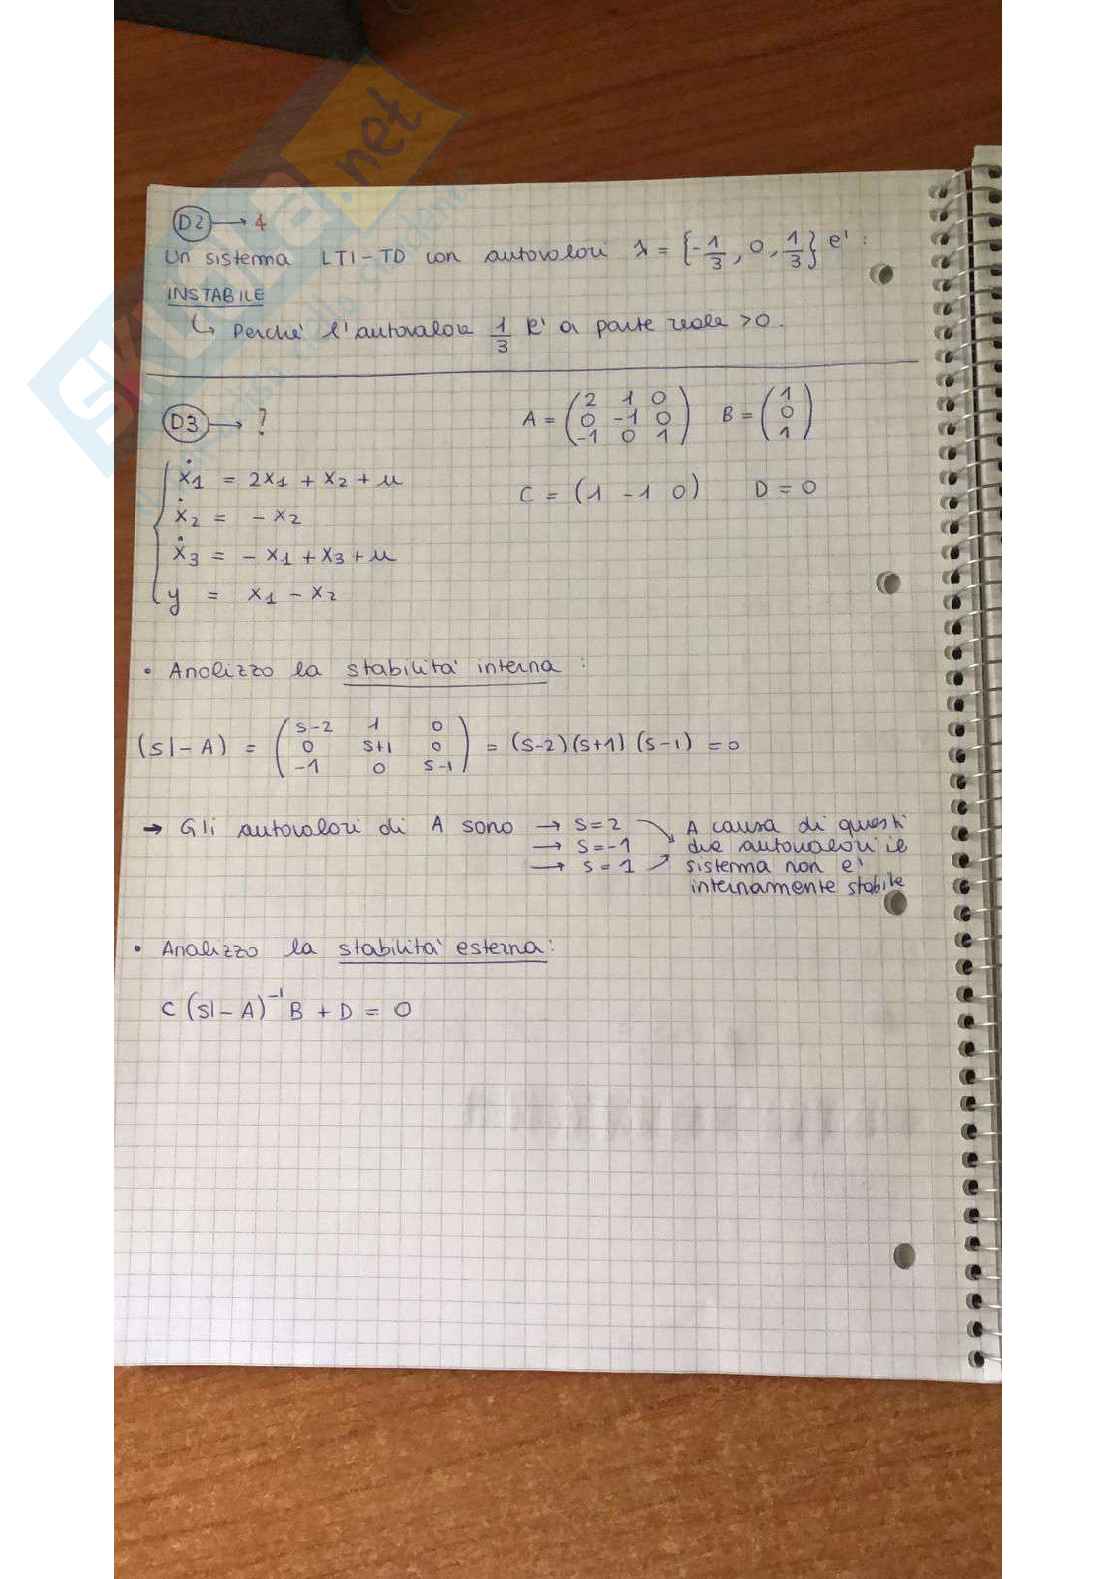 D2 → 4
Un sistema LTI-TD con autovalori λ = {-1/3, 0, 1/3} e' :
INSTABILE
↳ Perche' l'autovalore 1/3 E' a parte reale >0.
D3 → ?
A = (2 1 0; 0 -1 0; -1 0 1) B = (1; 0; 1)
ẋ1 = 2x1 + x2 + u
C = (1 -1 0) D = 0
ẋ2 = - x2
ẋ3 = - x1 + x3 + u
y = x1 - x2
• Analizzo la stabilita' interna :
(sI - A) = (s-2 1 0; 0 s+1 0; -1 0 s-1) = (s-2)(s+1)(s-1) = 0
→ Gli autovalori di A sono → s=2 A causa di questi
→ s=-1 due autovalori il
→ s=1 sistema non e'
internamente stabile
• Analizzo la stabilita' esterna:
C (sI - A)⁻¹ B + D = 0
skuola.net